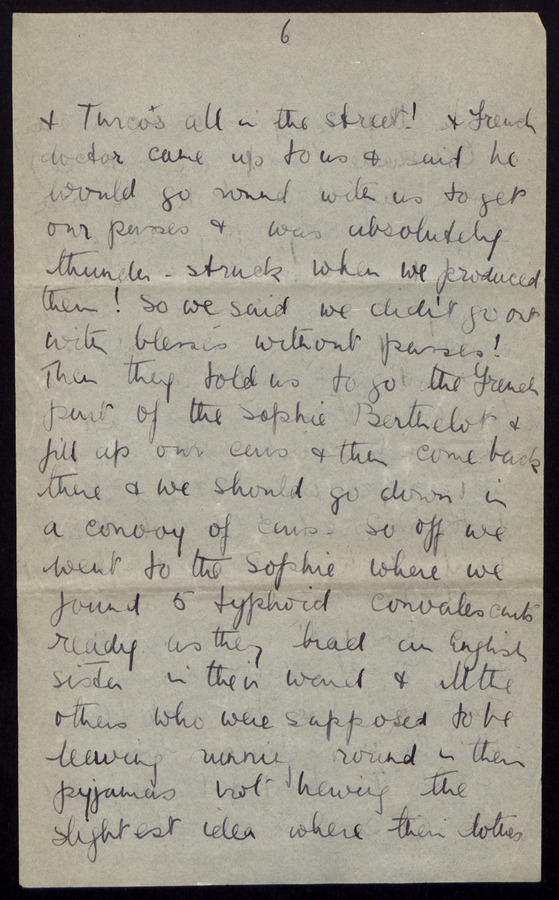 6
& Turcos all in the street! & French
doctor came up to us & said he
would go round with us to get
our passes & was absolutely
thunder-struck when we produced
them! So we said we didn't go out
with blessés without passes!
Then they told us to go the French
part of the Sophie Berthelot &
fill up our cars & then come back
there & we should go down in
a convoy of cars. So off we
went to the Sophie where we
found 5 typhoid convalescents
ready as they had an English
sister in their ward & all the
others who were supposed to be
leaving running round in their
pyjamas not having the
slightest idea where their clothes